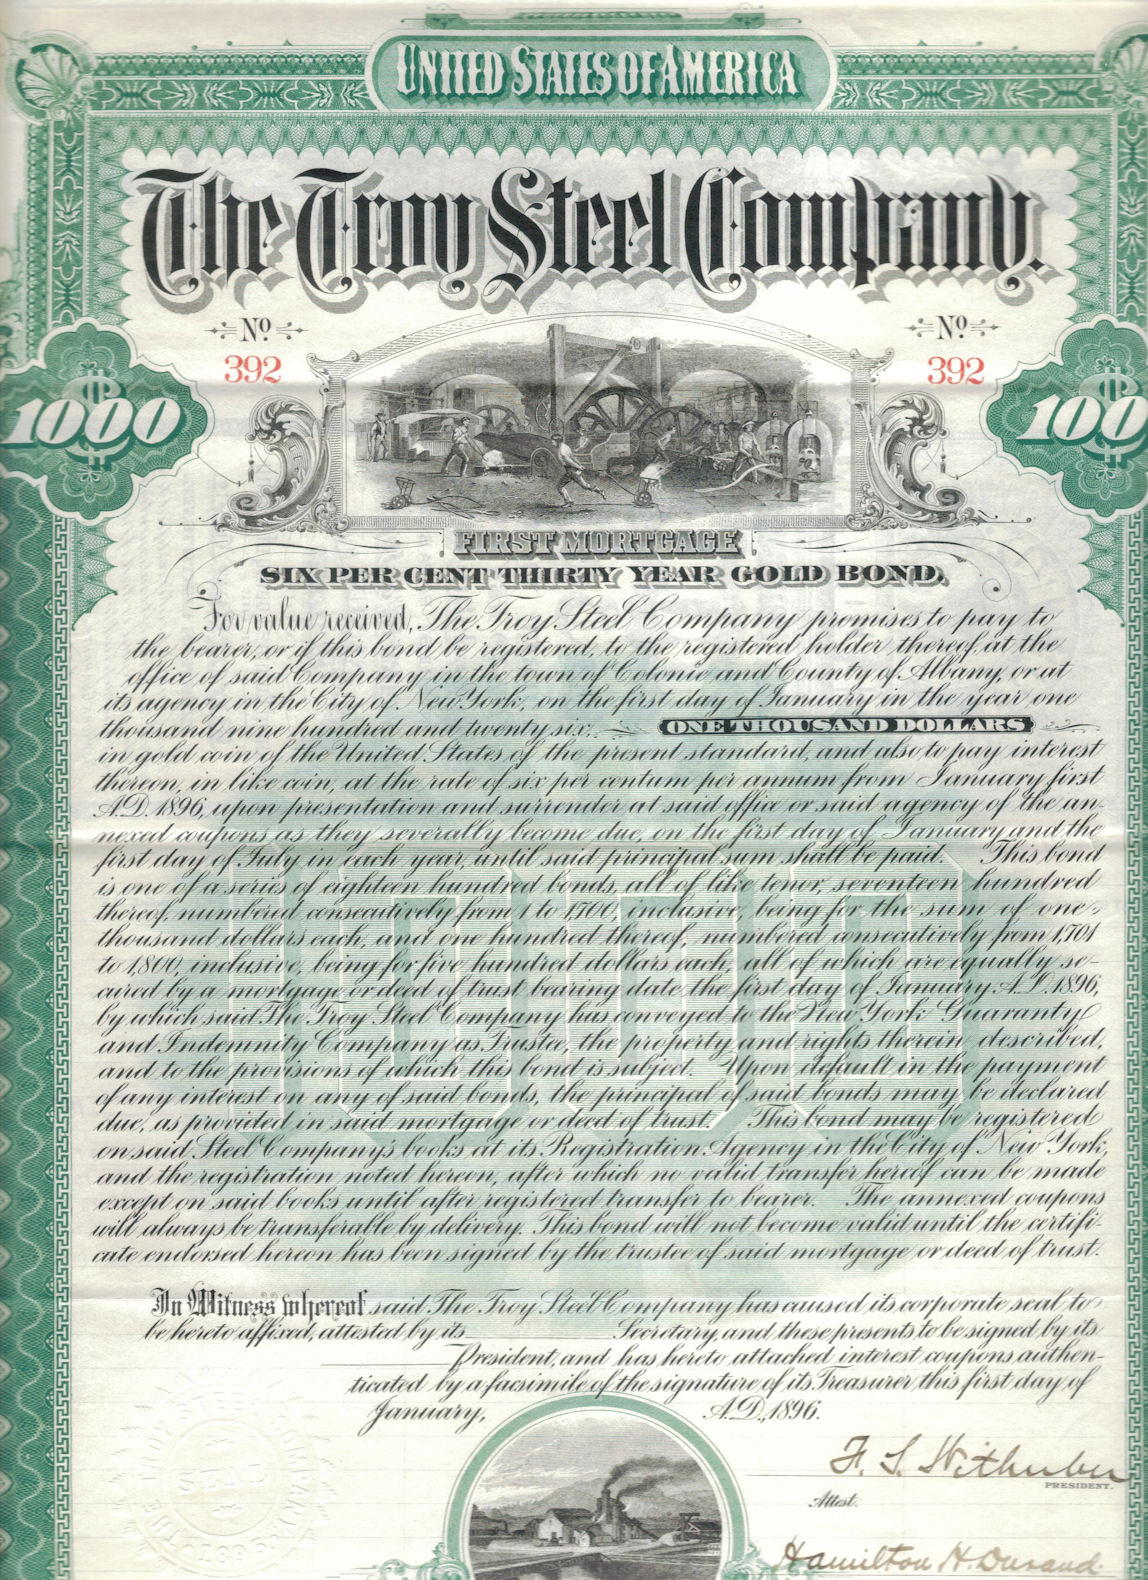 UNITED STATES OF AMERICA
The Troy Steel Company.
No No
392 392
$1000 $100
FIRST MORTGAGE
SIX PER CENT THIRTY YEAR GOLD BOND.
For value received, The Troy Steel Company promises to pay to
the bearer, or if this bond be registered, to the registered holder thereof, at the
office of said Company in the town of Colonie and County of Albany, or at
its agency in the City of New York, on the first day of January in the year one
thousand nine hundred and twenty six, ONE THOUSAND DOLLARS
in gold coin of the United States of the present standard, and also to pay interest
thereon, in like coin, at the rate of six per centum per annum from January first
A.D. 1896, upon presentation and surrender at said office or said agency of the an-
nexed coupons as they severally become due, on the first day of January and the
first day of July in each year, until said principal sum shall be paid. This bond
is one of a series of eighteen hundred bonds, all of like tenor, seventeen hundred
thereof, numbered consecutively from 1 to 1,700, inclusive, being for the sum of one-
thousand dollars each, and one hundred thereof, numbered consecutively from 1,701
to 1,800, inclusive, being for five hundred dollars each, all of which are equally se-
cured by a mortgage or deed of trust bearing date the first day of January, A.D. 1896,
by which said The Troy Steel Company has conveyed to the New York Guaranty
and Indemnity Company as Trustee, the property and rights therein described,
and to the provisions of which this bond is subject. Upon default in the payment
of any interest on any of said bonds, the principal of said bonds may be declared
due, as provided in said mortgage or deed of trust. This bond may be registered
on said Steel Company's books at its Registration Agency in the City of New York,
and the registration noted hereon, after which no valid transfer hereof can be made
except on said books until after registered transfer to bearer. The annexed coupons
will always be transferable by delivery. This bond will not become valid until the certifi-
cate endorsed hereon has been signed by the trustee of said mortgage or deed of trust.
In Witness whereof said The Troy Steel Company has caused its corporate seal to
be hereto affixed, attested by its Secretary, and these presents to be signed by its
President, and has hereto attached interest coupons authen-
ticated by a facsimile of the signature of its Treasurer this first day of
January, A.D. 1896.
PRESIDENT.
Attest.
Hamilton H. Durand
THE TROY STEEL COMPANY
SEAL
1895